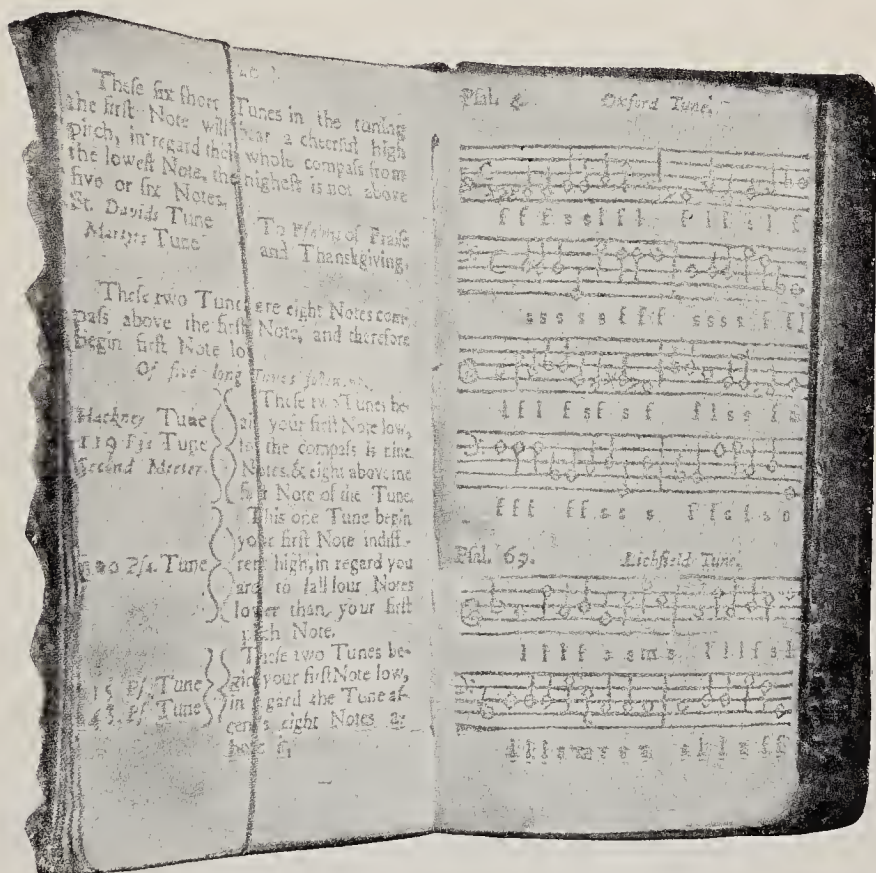 These six short Tunes in the tuning
the first Note will bear a cheerful high
pitch, in regard their whole compass from
the lowest Note, the highest is not above
five or six Notes,
St. Davids Tune
Martyrs Tune
To Psalms of Praise
and Thanksgiving.
These two Tunes are eight Notes com-
pass above the first Note, and therefore
begin first Note lo
Of five long Tunes
Hackney Tune
119 Psa Tune
Second Meeter.
These two Tunes be-
your first Note low,
the compass is nine
Notes, & eight above the
first Note of the Tune.
Psa. Tune
This one Tune begin
your first Note indiffe-
rent high, in regard you
are to fall four Notes
lower than your first
pitch Note.
Ps. Tune
Ps. Tune
These two Tunes be-
gin your first Note low,
in regard the Tune as-
cends eight Notes a-
bove
Psal. 4. Oxford Tune.
f f f s s l f l f l f s l f
s s s s s f f f s s s s f f l
l f l f s f s f f l s s f s
f f f f f s s s
Psal. 69. Lichfield Tune.
l f f f s s m s f l l f s l